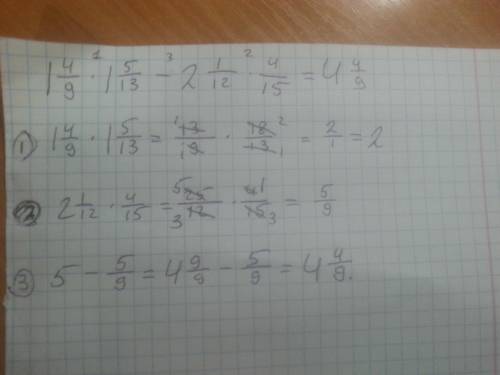 1 4/9 ·¹ 1 5/13 −³ 2 1/12 ·² 4/15 = 4 4/9
① 1 4/9 · 1 5/13 = ¹13/19 · 18²/13₁ = 2/1 = 2
② 2 1/12 · 4/15 = ⁵25/₃12 · 4¹/15₃ = 5/9
③ 5 − 5/9 = 4 9/9 − 5/9 = 4 4/9.